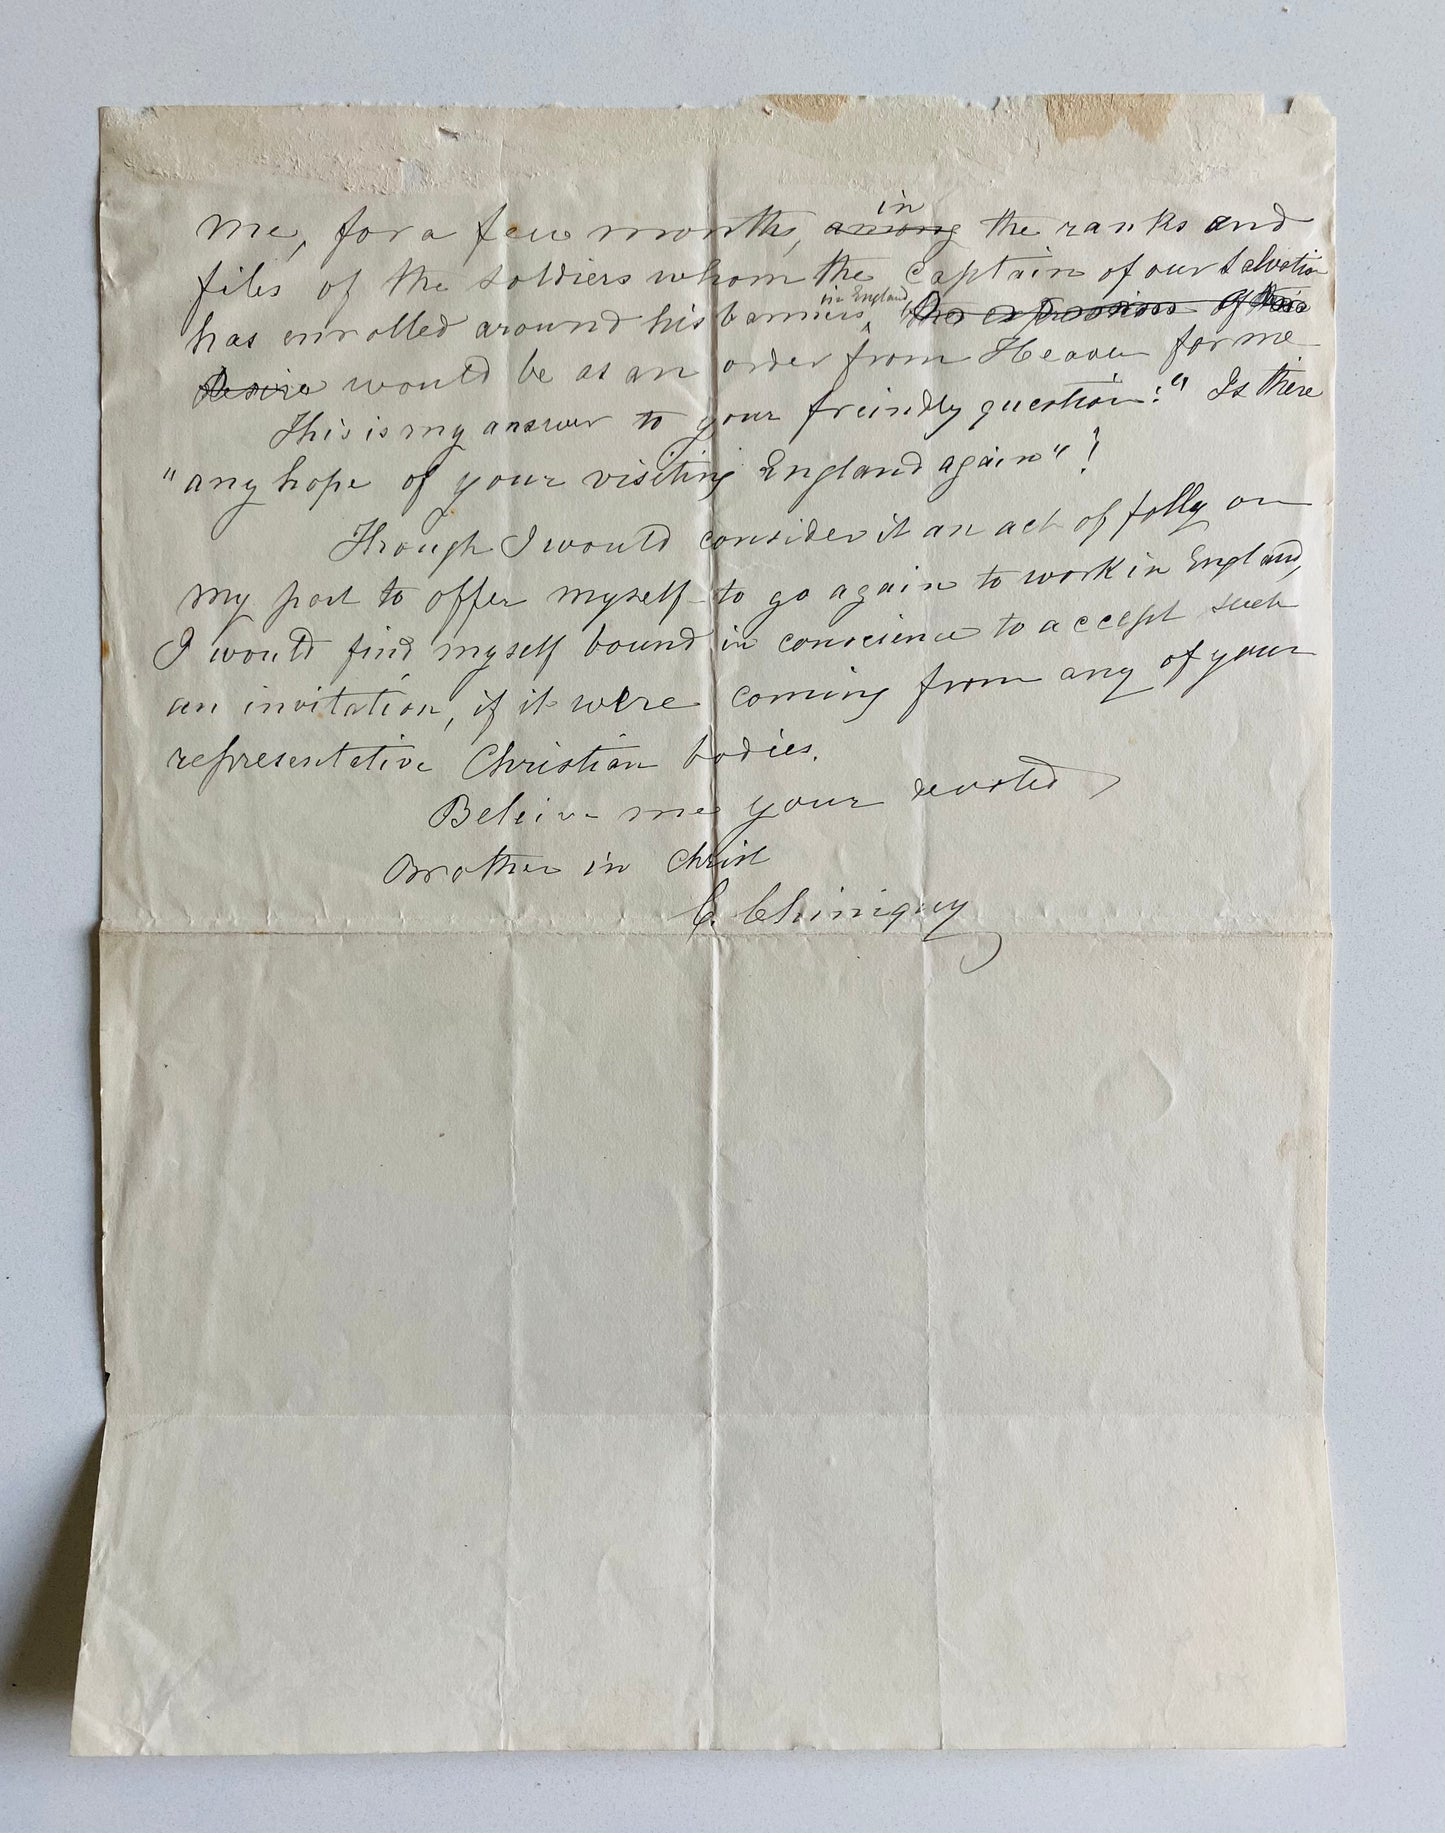 me, for a few months, among in the ranks and
files of the soldiers whom the Captain of our Salvation
has enrolled around his banners in England, the expression of their
desire would be as an order from Heaven for me
This is my answer to your freindly question:" Is there
"any hope of your visiting England again"?
Though I would consider it an act of folly on
my part to offer myself to go again to work in England,
I would find myself bound in conscience to accept such
an invitation, if it were coming from any of your
representative Christian bodies.
Beleive me your devoted
Brother in Christ
C. Chiniquy